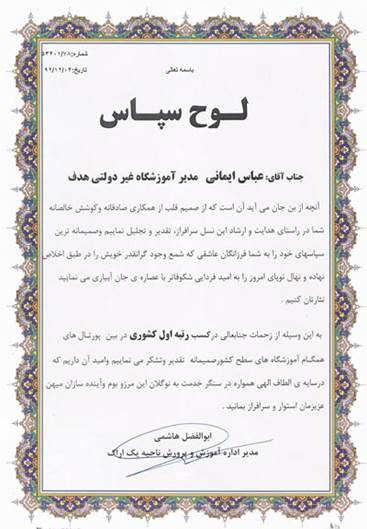 شماره:۵۳۴۰۱/۷۸
باسمه تعالی
تاریخ:۹۲/۱۲/۰۴
لوح سپاس
جناب آقای: عباس ایمانی مدیر آموزشگاه غیر دولتی هدف
آنچه از بن جان می آید آن است که از صمیم قلب از همکاری صادقانه وکوشش خالصانه
شما در راستای هدایت و ارشاد این نسل سرافراز، تقدیر و تجلیل نماییم وصمیمانه ترین
سپاسهای خود را به شما فرزانگان عاشقی که شمع وجود گرانقدر خویش را در طبق اخلاص
نهاده و نهال نوپای امروز را به امید فردایی شکوفاتر با عصاره ی جان آبیاری می نمایید
نثارتان کنیم .
به این وسیله از زحمات جنابعالی درکسب رتبه اول کشوری در بین پورتال های
همگام آموزشگاه های سطح کشورصمیمانه تقدیر وتشکر می نماییم وامید آن داریم که
درسایه ی الطاف الهی همواره در سنگر خدمت به نوگلان این مرزو بوم وآینده سازان میهن
عزیزمان استوار و سرافراز بمانید .
ابوالفضل هاشمی
مدیر اداره آموزش و پرورش ناحیه یک اراک